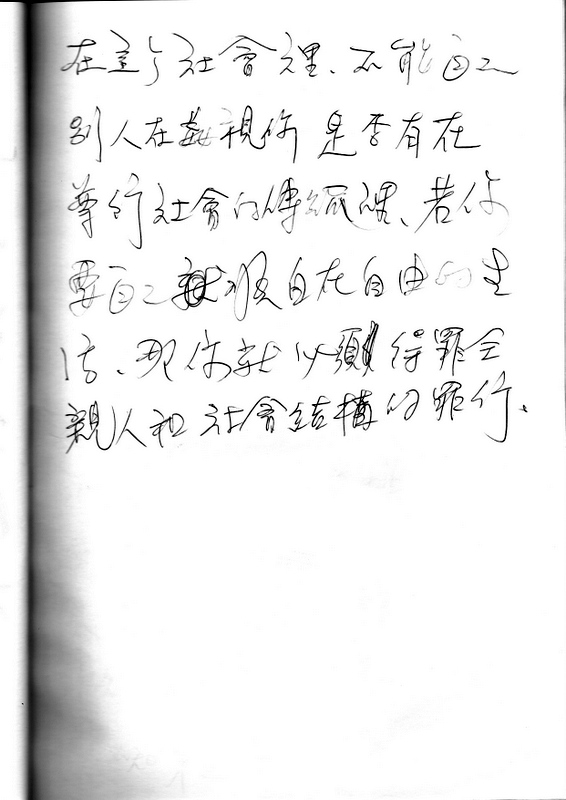 在這个社會裡、不能自己
別人在藐視你 是否有在
尊行社會的傳統裡、若你
要自己 很自在自由的生
活、那你就必須 得罪
親人和社會結構的罪行.